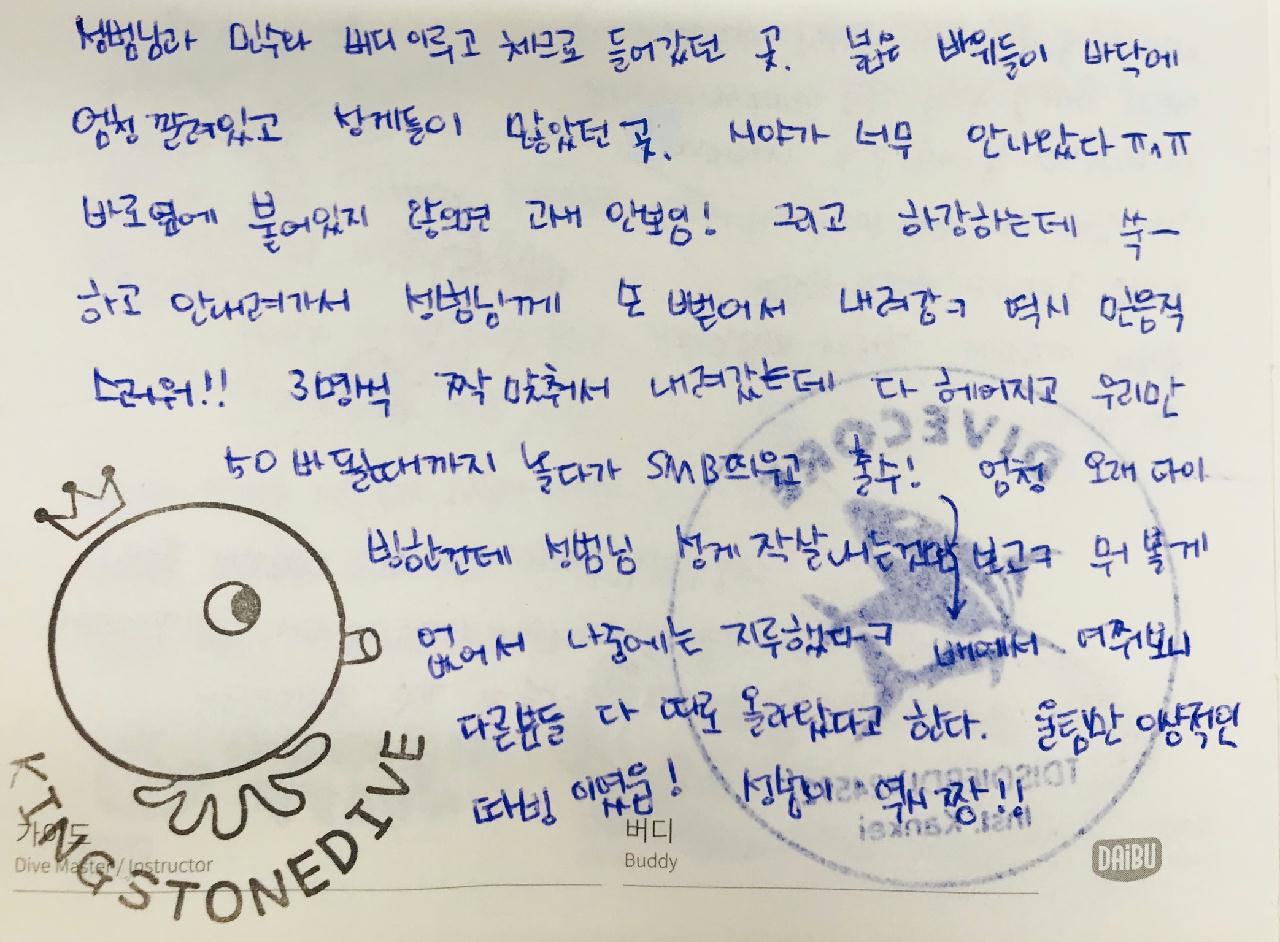 성범님과 민수와 버디 이루고 체크로 들어갔던 곳. 붉은 바위들이 바닥에
엄청 깔려있고 성게들이 많았던 곳. 시야가 너무 안나왔다 ㅠㅅㅠ
바로옆에 붙어있지 않으면 과새 안보임! 그리고 하강하는데 쑥ㅡ
하고 안내려가서 성범님께 손 뻗어서 내려감ㅋ 역시 믿음직
스러워!! 3명씩 짝 맞춰서 내려갔는데 다 헤어지고 우리만
50바 될때까지 놀다가 SMB띄우고 출수! 엄청 오래 다이
빙한건데 성범님 성게 작살내는것만 보고ㅋ 뭐 볼게
없어서 나중에는 지루했다ㅋ 배에서 여쭤보니
다른분들 다 따로 올라왔다고 한다. 울팀만 이상적인
따빙 이였음! 성범님 역시 짱!!
KINGSTONEDIVE
가이드
Dive Master / Instructor
버디
Buddy
DAIBU
DIVECORP
Inst. Kankei